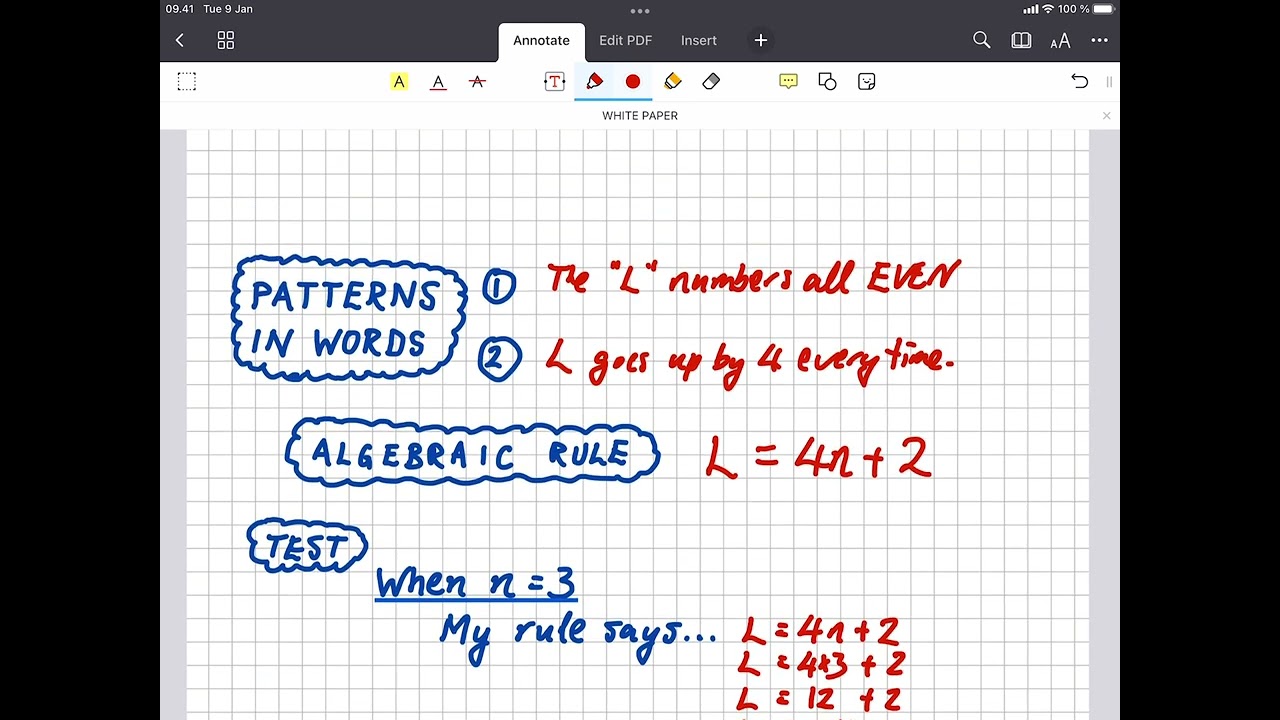 09.41 Tue 9 Jan
100 %
Annotate Edit PDF Insert
AA
A A A T
WHITE PAPER
PATTERNS
IN WORDS
① The "L" numbers all EVEN
② L goes up by 4 every time.
ALGEBRAIC RULE L = 4n + 2
TEST
When n = 3
My rule says... L = 4n + 2
L = 4x3 + 2
L = 12 + 2